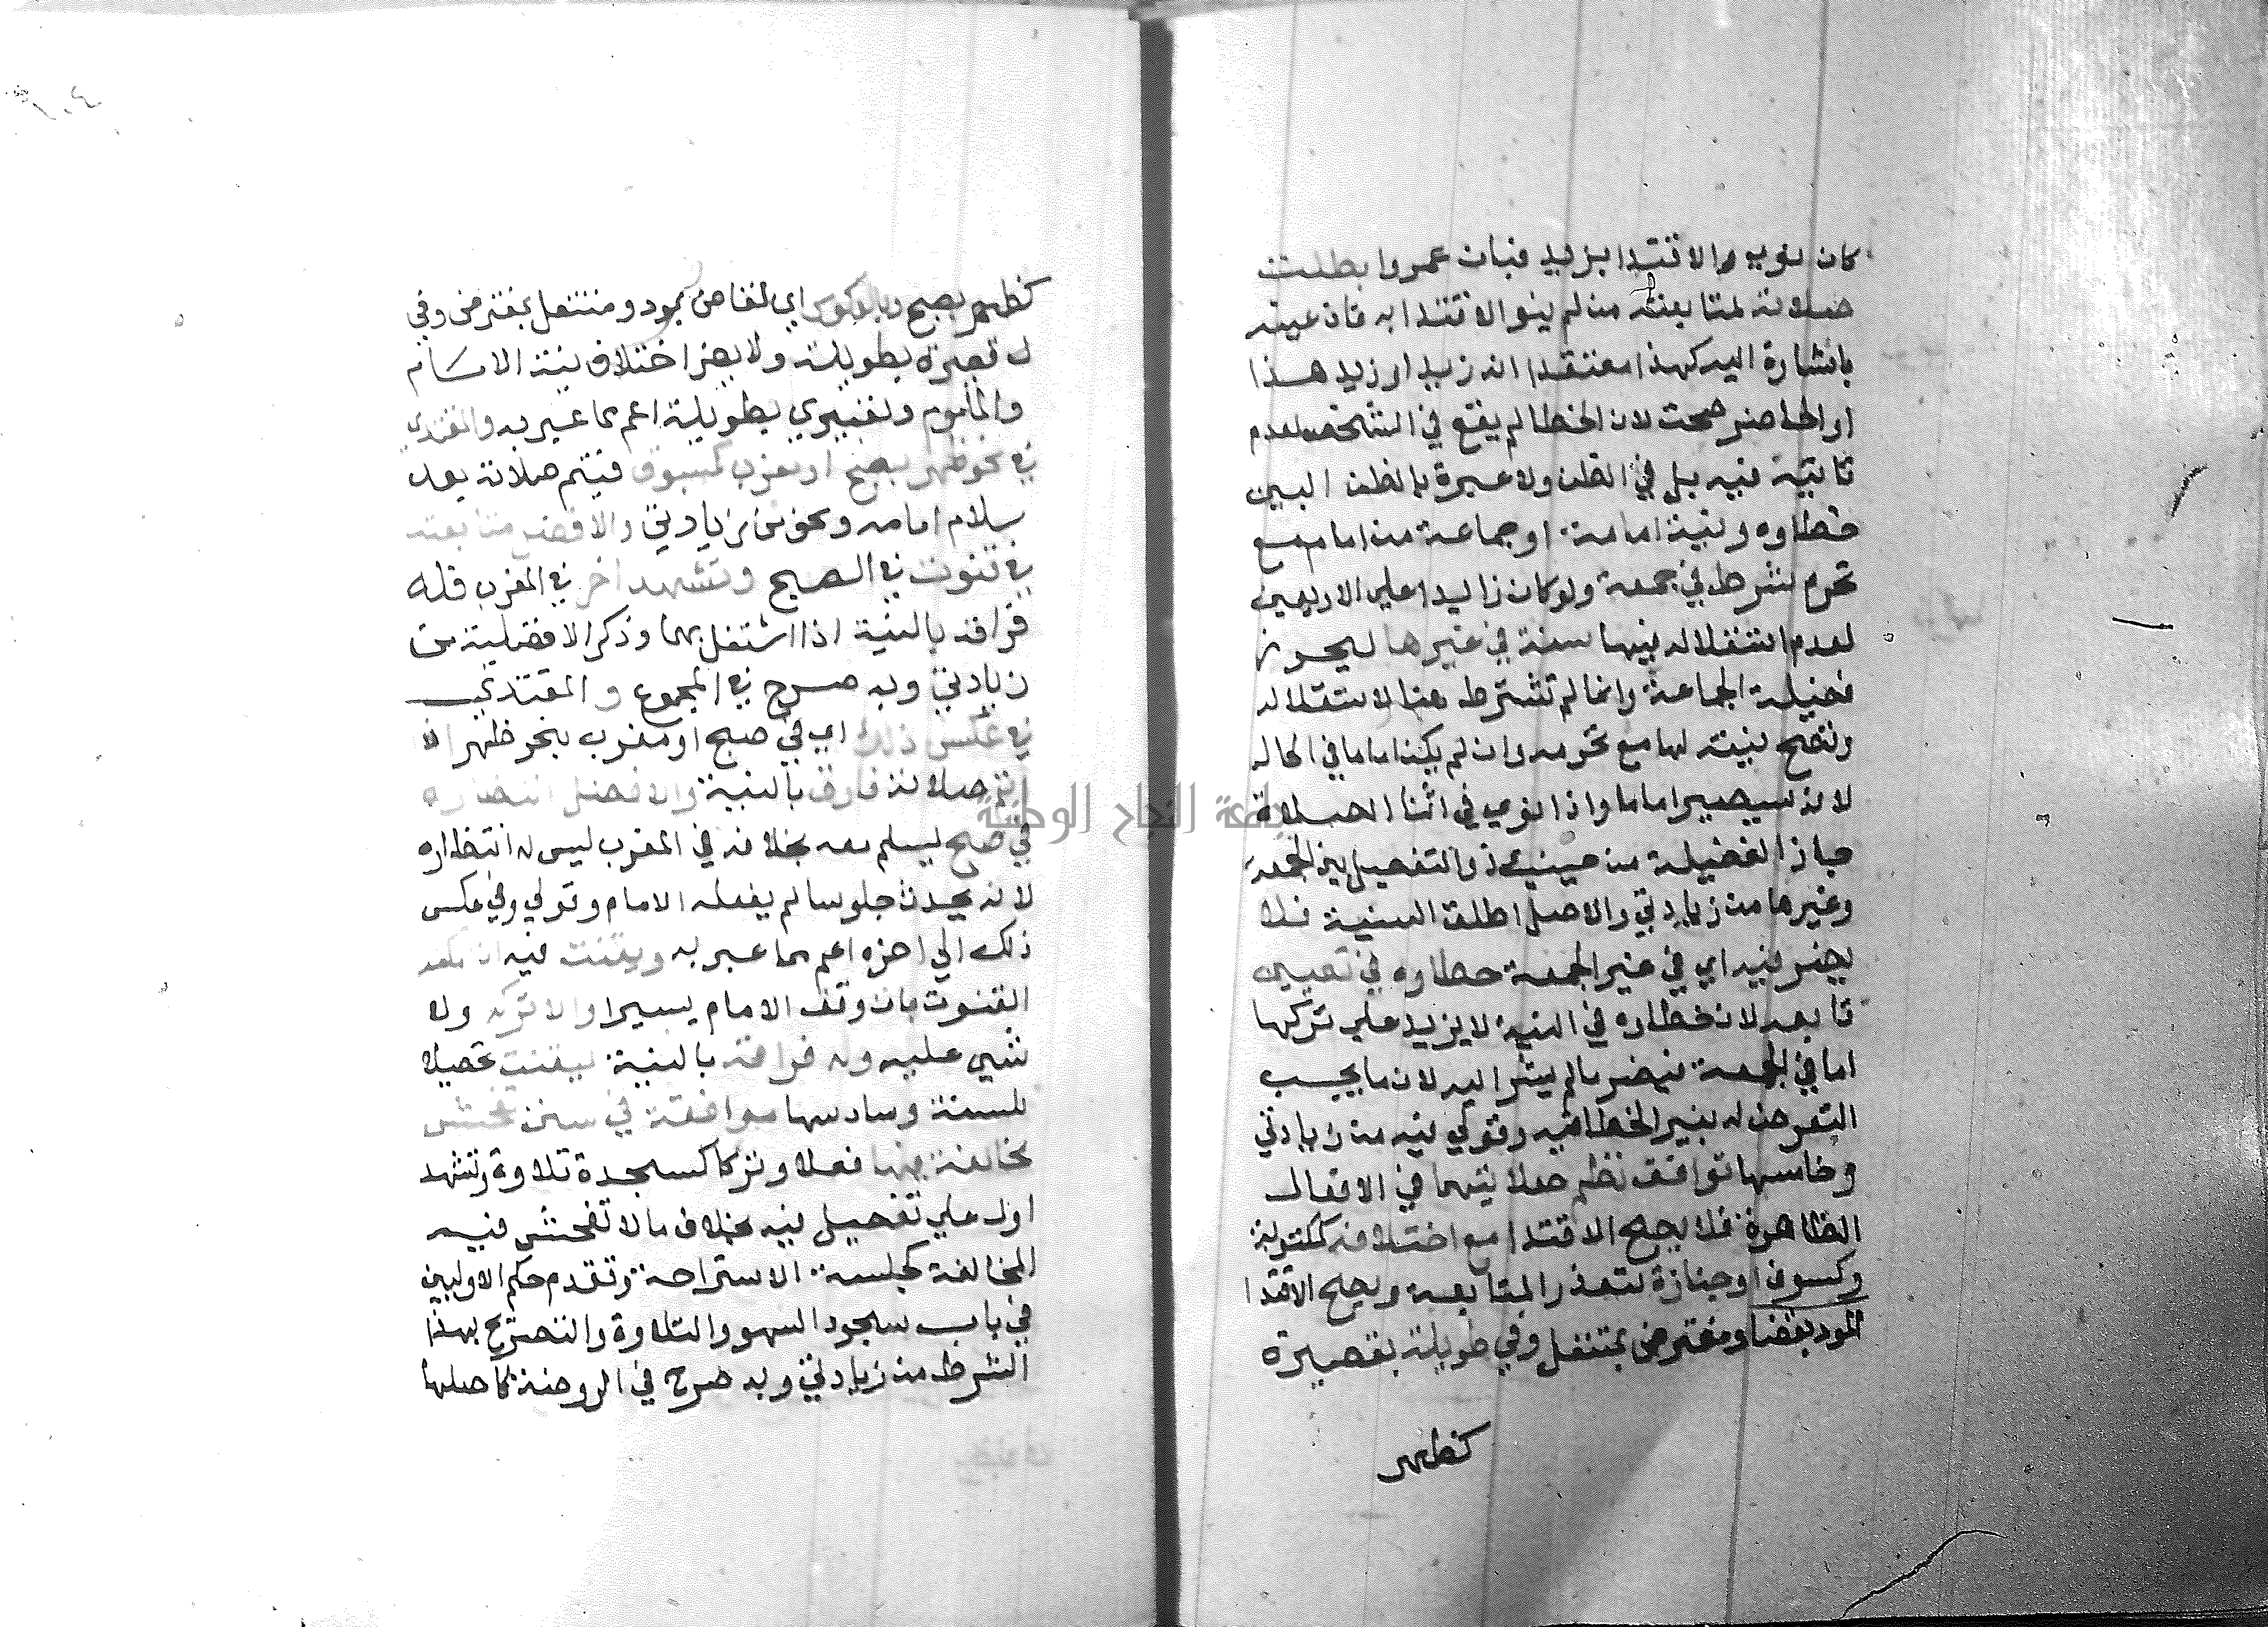 كان نوي والاقتدا بزيد فبان عمروا بطلت
صلاته لمتابعته من لم ينو الاقتدا به فان عينه
باشارة اليه كهذا معتقدا انه زيد او زيد هذا
او الحاضر صحت لان الخطا لم يقع في الشخص لعدم
تاتيه فيه بل في الظن ولا عبرة بالظن البين
خطاوه ونية امامة او جماعة من امام مع
تحرم شرط في جمعة ولو كان زايدا علي الاربعين
لعدم استقلاله فيها سنة في غيرها ليحوز
فضيلة الجماعة وانما لم تشترط هنا لاستقلاله
وتصح نيته لها مع تحرمه وان لم يكن اماما في الحال
لانه سيصير اماما واذا نوي في اثنا الصلاة
حاز الفضيلة من حينيذ والتفصيل بين الجمعة
وغيرها من زيادتي والاصل اطلق السنية فلا
يضر فيه اي في غير الجمعة خطاوه في تعيين
تابعه لان خطاه في النية لا يزيد علي تركها
اما في الجمعة فيضر ما لم يشر اليه لان ما يجب
التعرض له يضر الخطا فيه وقولي فيه من زيادتي
وخامسها توافق نظم صلاتيهما في الافعال
الظاهرة فلا يصح الاقتدا مع اختلافه كمكتوبة
وكسوف او جنازة لتعذر المتابعة ويصح الاقتدا
لمود بقضا ومفترض بمتنفل وفي طويلة بقصيرة
كظهر
كظهر بصبح وبالعكوس اي لقاض بمود ومتنفل بمفترض وفي
قصيرة بطويلة ولا يضر اختلاف نية الامام
والماموم وتعبيري بطويلة اعم مما عبر به والمقتدي
في نحو ظهر بصبح او مغرب كمسبوق فيتم صلاته بعد
سلام امامه ونحو من زيادتي والافضل متابعته
في قنوت في الصبح وتشهد اخر في المغرب فله
فراقه بالنية اذا اشتغل بهما وذكر الافضلية من
زيادتي وبه صرح في المجموع والمقتدي
في عكس ذلك اي في صبح او مغرب بنحو ظهر اذا
اتم صلاته فارق بالنية والافضل انتظاره
في صبح ليسلم معه بخلافه في المغرب ليس له انتظاره
لانه يحدث جلوسا لم يفعله الامام وقولي وفي عكس
ذلك الي اخره اعم مما عبر به ويقنت فيه ان امكنه
القنوت بان وقف الامام يسيرا والا تركه ولا
شي عليه وله فراقه بالنية ليقنت تحصيلا
للسنة وسادسها موافقة في سنن تفحش
مخالفة فيها فعلا وتركا كسجدة تلاوة وتشهد
اول علي تفصيل فيه بخلاف ما لا تفحش فيه
المخالفة كجلسة الاستراحة وتقدم حكم الاوليين
في باب سجود السهو والتلاوة والتصريح بهذا
الشرط من زيادتي وبه صرح في الروضة كاصلها
جامعة النجاح الوطنية